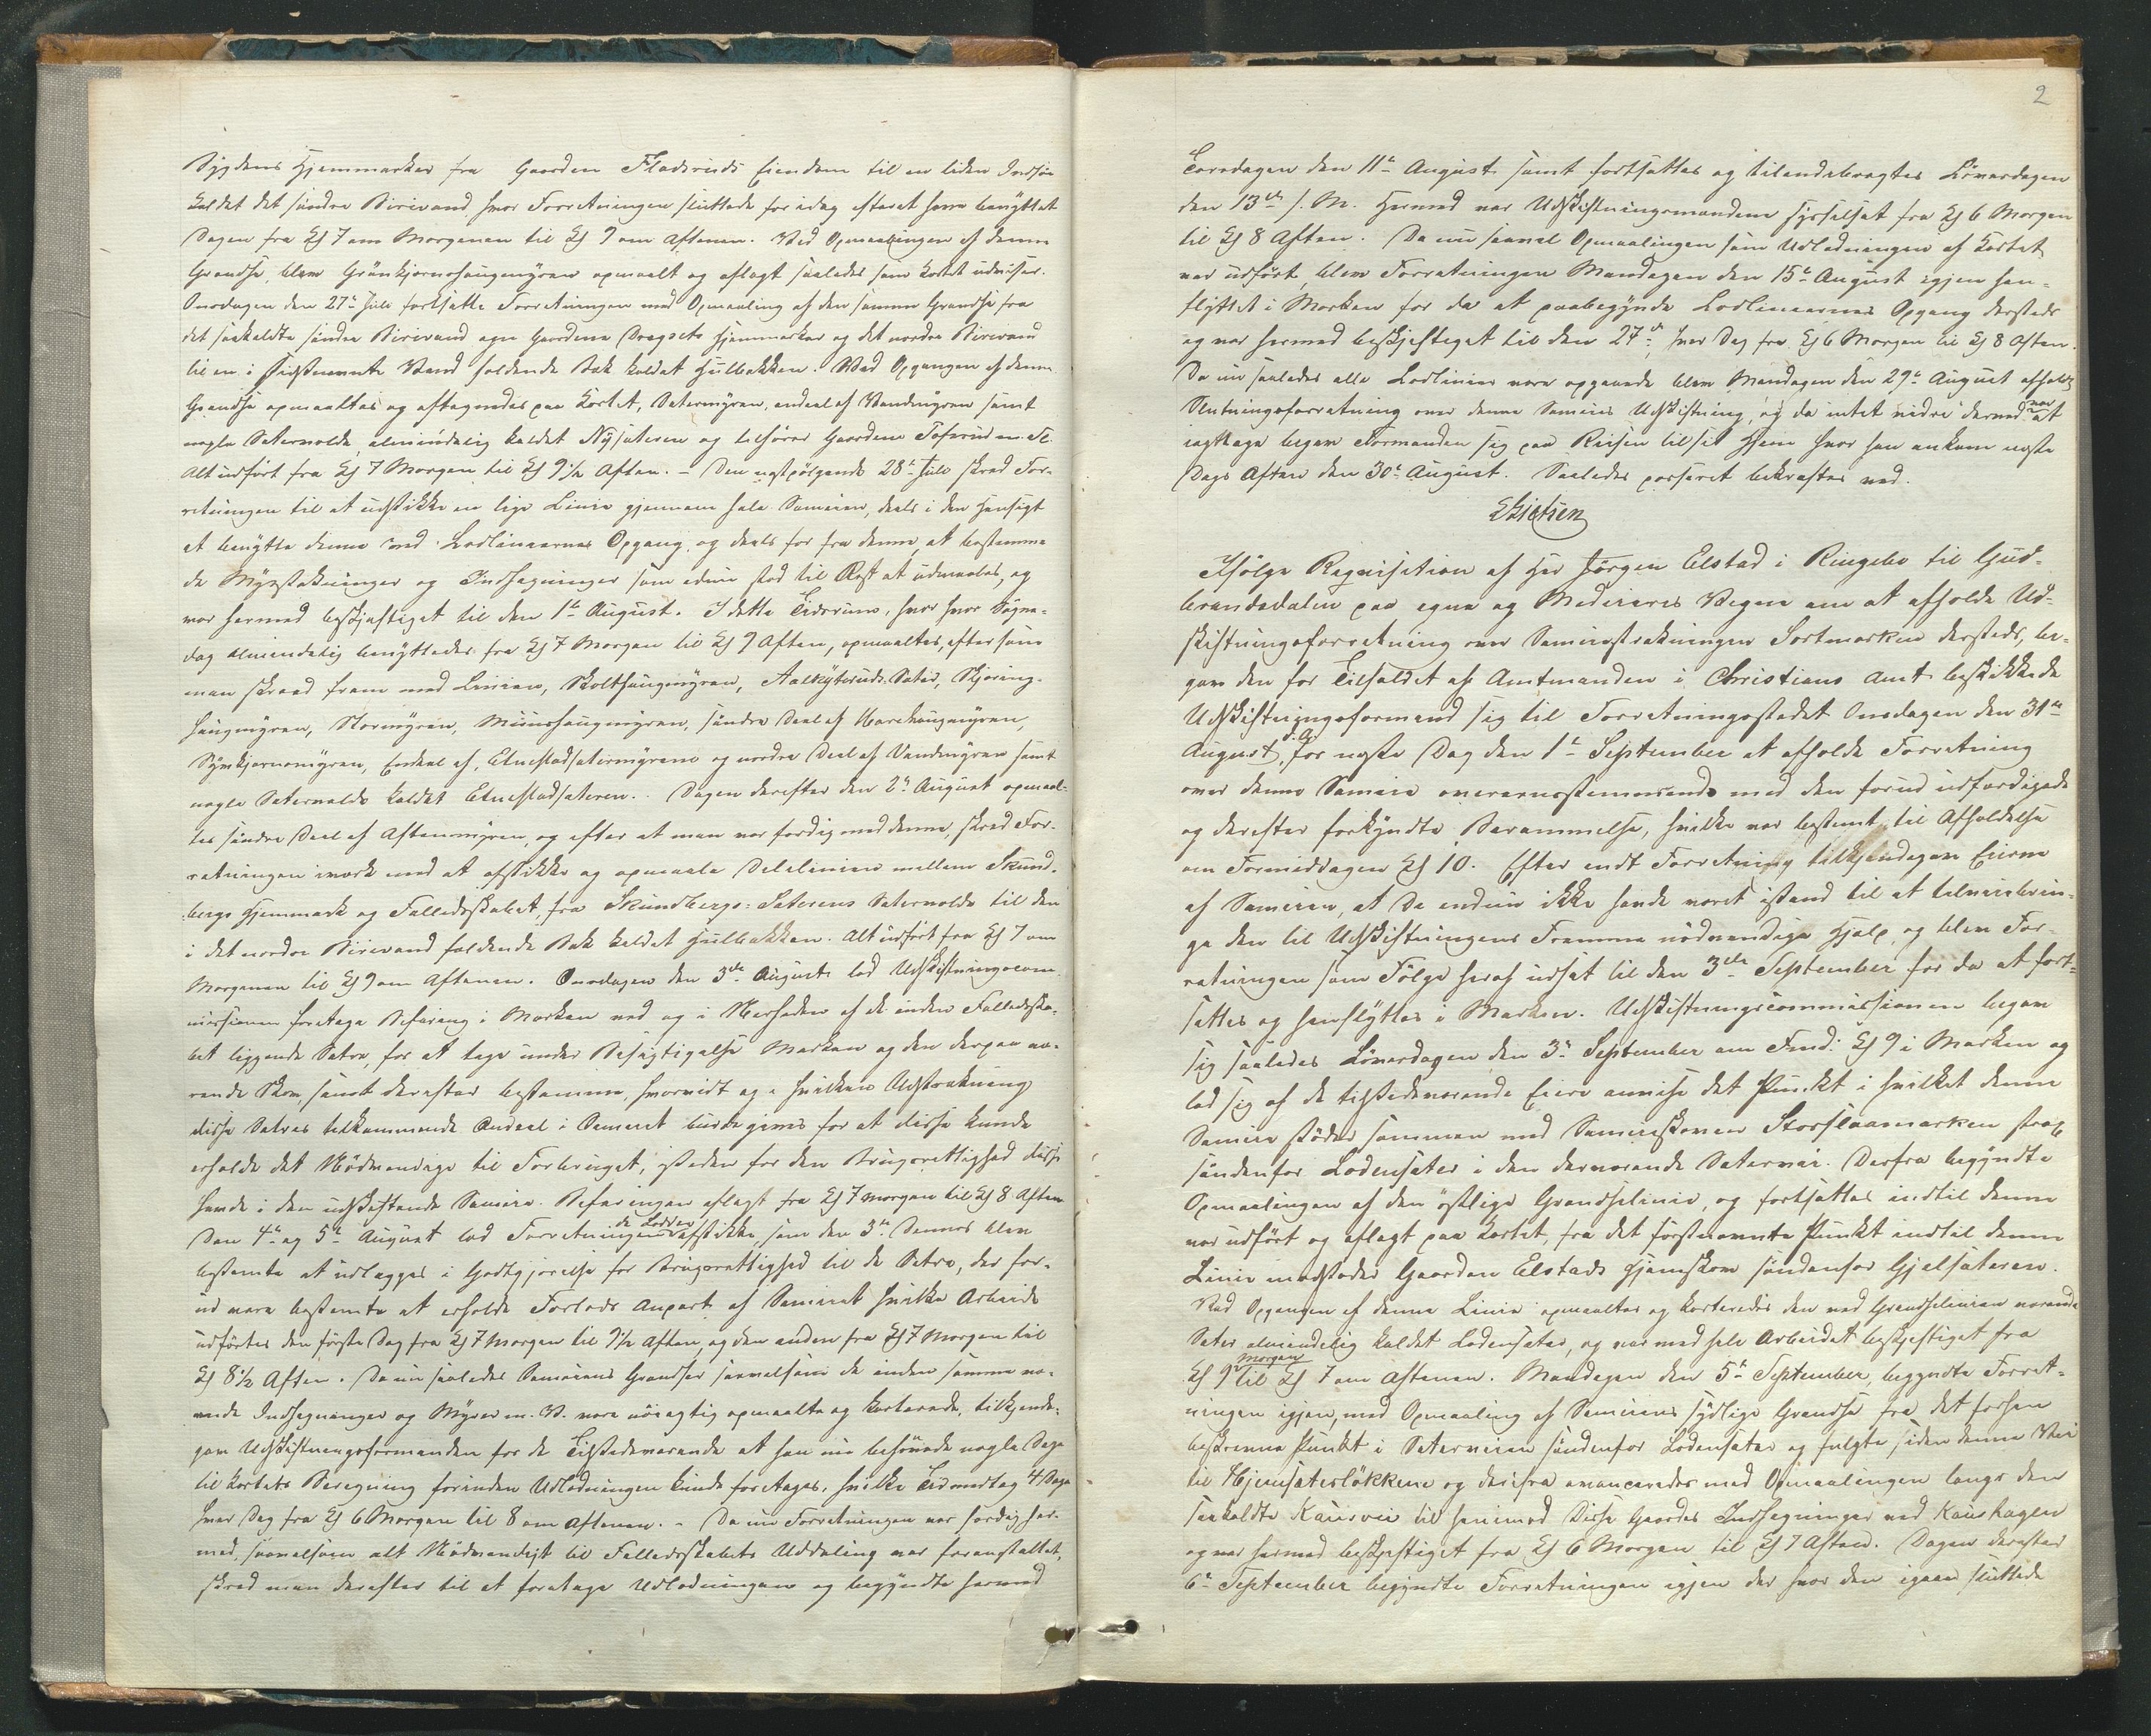 Bygdens Hjemmarker fra Gaarden Fladsruds Eiendom til en liden Indsøe
kaldet det søndre Birivand hvor Forretningen sluttede for idag efterat have benyttet
Dagen fra Kl 7 om Morgenen til Kl 9 om Aftenen. Ved Opmaalingen af denne
Grændse, blev Grønkjernshaugmyren opmaalt og aflagt saaledes som Kortet udviser.
Onsdagen den 27de Juli fortsatte Forretningen med Opmaaling af den samme Grændse fra
det saakaldte søndre Birivand egn Gaardene Dragsets Hjemmarker og det nordre Birivand
til en i Sidstnævnte Vand faldende Bæk kaldet Hulbækken. Ved Opgangen af denne
Grændse opmaaltes og aftegnedes paa Kortet, Sætermyren, endeel af Vandmyren samt
nogle Sætervolde almindelig kaldet Nysæteren og tilhører Gaardene Toftrud m. Fl.
Alt udført fra Kl 7 Morgen til Kl 9 1/2 Aften. – Den nestpølgende 28de Juli skred For-
retningen til at udstikke en lige Linie gjennem hele Sameien, deels i den Hensigt
at benytte denne ved Lodlineernes Opgang, og deels for fra denne at bestemme
de Myrstrækninger og Indhegninger som endnu stod til Rest at udmaales, og
var hermed beskjæftiget til den 1te August. I dette Tidsrum, hvor hver Søgne-
dag almindelig benyttedes fra Kl 7 Morgen til Kl 9 Aften, opmaaltes, eftersom
man skreed frem med Linien, Skolthaugmyren, Aalkyteruds Sæter, Skjæring-
haugmyren, Stormyren, Muushaugmyren, søndre Deel af Harehaugmyren,
Tyrikjernsmyren, Endeel af, Elnestadsætermyren og nordre Deel af Vandmyren samt
nogle Sætervolde kaldet Elnestadsæteren. Dagen derefter den 2de August opmaal-
tes søndre Deel af Aftenmyren, og efter at man var færdig med denne, skred For-
retningen iverk med at afstikke og opmaale Delelinien mellem Skund-
bergs Hjemmark og Fælledsskabet, fra Skundbergs-Sæterens Sætervolde til den
i det nordre Birivand faldende Bæk kaldet Hulbækken. Alt udført fra Kl 7 om
Morgenen til Kl 9 om Aftenen. Onsdagen den 3die August lod Udskiftningscom-
missionen foretage Befaring i Marken ved og i Nærheden af de inden Fælledsska-
bet liggende Sætre, for at tage under Besigtigelse Marken og den derpaa væ-
rende Skov, samt derefter bestemme, hvorvidt og i hvilken Udstrækning
disse Sætres tilkommende Andeel i Sameiet burde gives for at disse kunde
erholde det Nødvendige til Forbruget, isteden for den Brugsrettighed disse
havde i den udskiftende Sameie. Befaringen aflagt fra Kl 7 morgen til Kl 8 Aften
Den 4de og 5te August lod Forretningen de Lodder afstikke, som den 3die Dennes blev
bestemte at udlægges i Godtgjørelse for Brugsrettighed til de Sætre, der for-
ud vare bestemte at erholde Forlods Anpart af Sameiet hvilke Arbeide
udførtes den første Dag fra Kl 7 Morgen til 9 1/2 Aften og den anden fra Kl 7 Morgen til
Kl 8 1/2 Aften. Da nu saaledes Sameiens Grændser saavelsom de inden samme væ-
rende Indhegninger og Myrer m. V. vare nøiagtig opmaalte og karterede, tilkjende-
gav Udskiftningsformanden for de Tilstedeværende at han nu behøvede nogle Dage
til Kortets Beregning forinden Udlodningen kunde foretages, hvilke Tid medtog 4 Dage
hver Dag fra Kl 6 Morgen til 8 om Aftenen. – Da nu Forretningen var færdig her-
med, saavelsom alt Nødvendigt til Fælledsskabets Uddeling var foranstaltet,
skred man derefter til at foretage Udlodningen og begyndte hermed
2
Torsdagen den 11te August samt fortsattes og tilendebragtes Løverdagen
den 13de s. M. Hermed var Udskiftningsmændene sysselsat fra Kl 6 Morgen
til Kl 8 Aften. Da nu saavel Opmaalingen som Udlodningen af Kortet
var udført, blev Forretningen Mandagen den 15de August igjen hen-
flyttet i Marken for da at paabegynde Lodlineernes Opgang dersteds
og var hermed beskjeftiget til den 27de, hver Dag fra Kl 6 Morgen til Kl 8 Aften.
Da nu saaledes alle Lodlinier vare opgaaede blev Mandagen den 29de August afholdt
Slutningsforretning over denne Sameies Udskiftning, og da intet videre dermed var at
iagttage begav Formanden sig paa Reisen til sit Hjem hvor han ankom næste
Dags Aften den 30te August. Saaledes passeret bekræftes ved.
Ifølge Requisition af Hr Jørgen Elstad i Ringebo til Gud-
brandsdalen paa egne og Medeieres Vegne om at afholde Ud-
skiftningsforretning over Sameiestrækningen Sortmarken dersteds, be-
gav den for Tilfældet af Amtmanden i Christians Amt beskikkede
Udskiftningsformand sig til Forretningsstedet Onsdagen den 31te
August d. A. for næste Dag den 1te September at afholde Forretning
over denne Sameie overensstemmende med den forud udfærdigede
og derefter forkyndte Berammelse, hvilke var bestemt til Afholdelse
om Formiddagen Kl 10. Efter endt Forretning tilkjendegav Eierne
af Sameien, at de endnu ikke havde været istand til at tilveiebrin-
ge den til Udskiftningens Fremme nødvendige Hjelp, og blev For-
retningen som Følge heraf udsat til den 3die September for da at fort-
sættes og henflyttes i Marken. Udskiftningscommissionen begav
sig saaledes Løverdagen den 3die September om Fmd: Kl 9 i Marken og
lod sig af de tilstedeværende Eiere anvise det Punkt i hvilket denne
Sameie støder sammen med Sameieskoven Storslaamarken strax
søndenfor Lodensæter i den derværende Sætervei. Derfra begyndte
Opmaalingen af den østlige Grændselinie, og fortsattes indtil denne
var udført og aflagt paa Kortet, fra det førstnævnte Punkt indtil denne
Linie modstøder Gaarden Elstads Hjemskov søndenfor Gjelsæteren.
Ved Opgangen af denne Linie opmaaltes og karteredes den ved Grændselinien værende
Sæter almindelig kaldet Lodensæter, og var med hele Arbeidet beskjeftiget fra
Kl 9 Morgen til Kl 7 om Aftenen. Mandagen den 5te September, begyndte Forret-
ningen igjen, med Opmaaling af Sameiens sydlige Grændse fra det forhen
beskrevne Punkt i Sæterveien søndenfor Lodensæter og fulgte siden denne Vei
til Hjemsæterløkkene og derifra avanceredes med Opmaalingen langs den
saakaldte Kausvei til henimod Disse Gaardes Indhegninger ved Kaushagen
og var hermed beskjeftiget fra Kl 6 Morgen til Kl 7 Aften. Dagen derefter
6te September begyndte Forretningen igjen der hvor den igaar sluttede